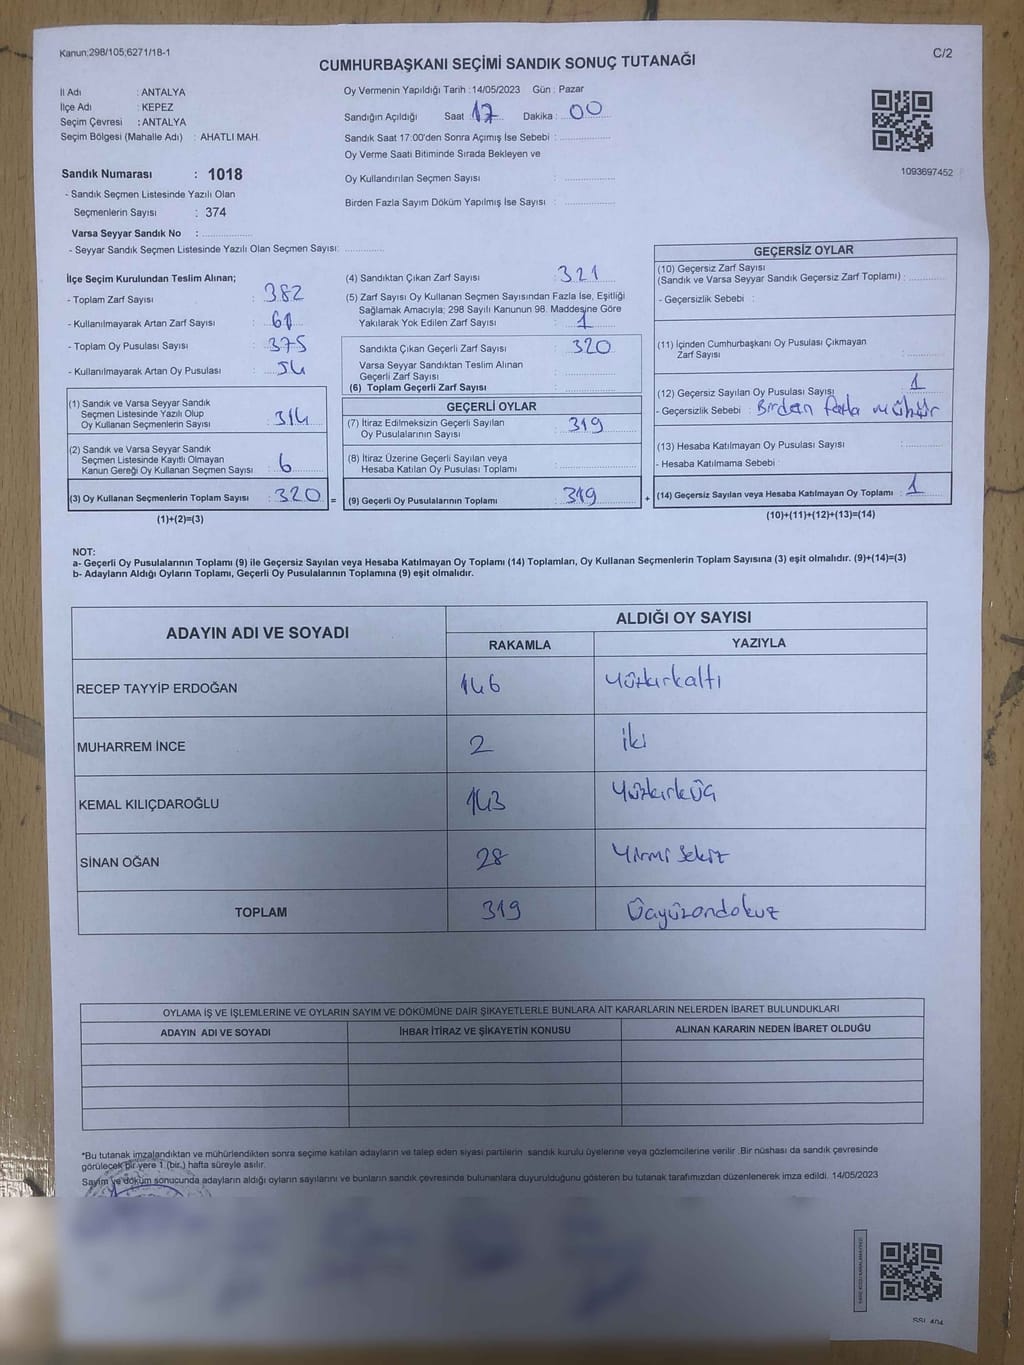 Kanun;298/105;6271/18-1
C/2
CUMHURBAŞKANI SEÇİMİ SANDIK SONUÇ TUTANAĞI
İl Adı : ANTALYA
İlçe Adı : KEPEZ
Seçim Çevresi : ANTALYA
Seçim Bölgesi (Mahalle Adı) : AHATLI MAH.
Oy Vermenin Yapıldığı Tarih :14/05/2023 Gün : Pazar
Sandığın Açıldığı Saat : 17 Dakika : 00
Sandık Saat 17:00'den Sonra Açımış İse Sebebi :
Oy Verme Saati Bitiminde Sırada Bekleyen ve
Oy Kullandırılan Seçmen Sayısı :
Birden Fazla Sayım Döküm Yapılmış İse Sayısı :
1093697452
Sandık Numarası : 1018
- Sandık Seçmen Listesinde Yazılı Olan
Seçmenlerin Sayısı : 374
Varsa Seyyar Sandık No :
- Seyyar Sandık Seçmen Listesinde Yazılı Olan Seçmen Sayısı:
İlçe Seçim Kurulundan Teslim Alınan;
- Toplam Zarf Sayısı : 382
- Kullanılmayarak Artan Zarf Sayısı : 61
- Toplam Oy Pusulası Sayısı : 375
- Kullanılmayarak Artan Oy Pusulası : 54
(1) Sandık ve Varsa Seyyar Sandık
Seçmen Listesinde Yazılı Olup
Oy Kullanan Seçmenlerin Sayısı : 314
(2) Sandık ve Varsa Seyyar Sandık
Seçmen Listesinde Kayıtlı Olmayan
Kanun Gereği Oy Kullanan Seçmen Sayısı : 6
(3) Oy Kullanan Seçmenlerin Toplam Sayısı : 320 =
(1)+(2)=(3)
(4) Sandıktan Çıkan Zarf Sayısı : 321
(5) Zarf Sayısı Oy Kullanan Seçmen Sayısından Fazla İse, Eşitliği
Sağlamak Amacıyla; 298 Sayılı Kanunun 98. Maddesine Göre
Yakılarak Yok Edilen Zarf Sayısı : 1
Sandıkta Çıkan Geçerli Zarf Sayısı : 320
Varsa Seyyar Sandıktan Teslim Alınan
Geçerli Zarf Sayısı :
(6) Toplam Geçerli Zarf Sayısı :
GEÇERLİ OYLAR
(7) İtiraz Edilmeksizin Geçerli Sayılan
Oy Pusulalarının Sayısı : 319
(8) İtiraz Üzerine Geçerli Sayılan veya
Hesaba Katılan Oy Pusulası Toplamı :
(9) Geçerli Oy Pusulalarının Toplamı : 319 +
GEÇERSİZ OYLAR
(10) Geçersiz Zarf Sayısı
(Sandık ve Varsa Seyyar Sandık Geçersiz Zarf Toplamı) :
- Geçersizlik Sebebi :
(11) İçinden Cumhurbaşkanı Oy Pusulası Çıkmayan
Zarf Sayısı :
(12) Geçersiz Sayılan Oy Pusulası Sayısı : 1
- Geçersizlik Sebebi : Birden fazla mühür
(13) Hesaba Katılmayan Oy Pusulası Sayısı :
- Hesaba Katılmama Sebebi :
(14) Geçersiz Sayılan veya Hesaba Katılmayan Oy Toplamı : 1
(10)+(11)+(12)+(13)=(14)
NOT:
a- Geçerli Oy Pusulalarının Toplamı (9) ile Geçersiz Sayılan veya Hesaba Katılmayan Oy Toplamı (14) Toplamları, Oy Kullanan Seçmenlerin Toplam Sayısına (3) eşit olmalıdır. (9)+(14)=(3)
b- Adayların Aldığı Oyların Toplamı, Geçerli Oy Pusulalarının Toplamına (9) eşit olmalıdır.
ADAYIN ADI VE SOYADI ALDIĞI OY SAYISI
RAKAMLA YAZIYLA
RECEP TAYYİP ERDOĞAN 146 Yüzkırkaltı
MUHARREM İNCE 2 iki
KEMAL KILIÇDAROĞLU 143 Yüzkırküç
SİNAN OĞAN 28 Yirmi sekiz
TOPLAM 319 Üçyüzondokuz
OYLAMA İŞ VE İŞLEMLERİNE VE OYLARIN SAYIM VE DÖKÜMÜNE DAİR ŞİKAYETLERLE BUNLARA AİT KARARLARIN NELERDEN İBARET BULUNDUKLARI
ADAYIN ADI VE SOYADI İHBAR İTİRAZ VE ŞİKAYETİN KONUSU ALINAN KARARIN NEDEN İBARET OLDUĞU
*Bu tutanak imzalandıktan ve mühürlendikten sonra seçime katılan adayların ve talep eden siyasi partilerin sandık kurulu üyelerine veya gözlemcilerine verilir .Bir nüshası da sandık çevresinde
görülecek bir yere 1 (bir.) hafta süreyle asılır.
Sayım ve döküm sonucunda adayların aldığı oyların sayılarını ve bunların sandık çevresinde bulunanlara duyurulduğunu gösteren bu tutanak tarafımızdan düzenlenerek imza edildi. 14/05/2023